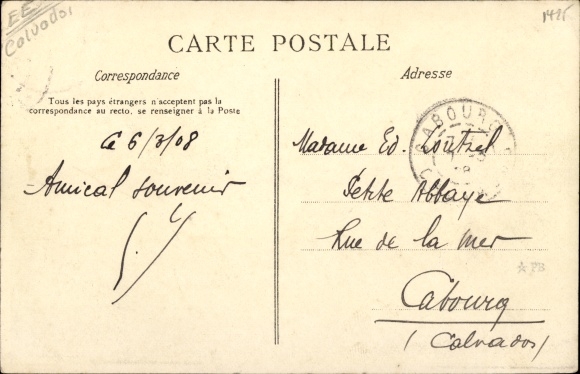 EE
Calvados
1425
CARTE POSTALE
Correspondance
Adresse
Tous les pays étrangers n acceptent pas la
correspondance au recto, se renseigner à la Poste
Ce 6/3/08
Amical souvenir
Madame Ed.
Petite Abbaye
Rue de la Mer
Cabourg
(Calvados)
CABOURG
☆ PB